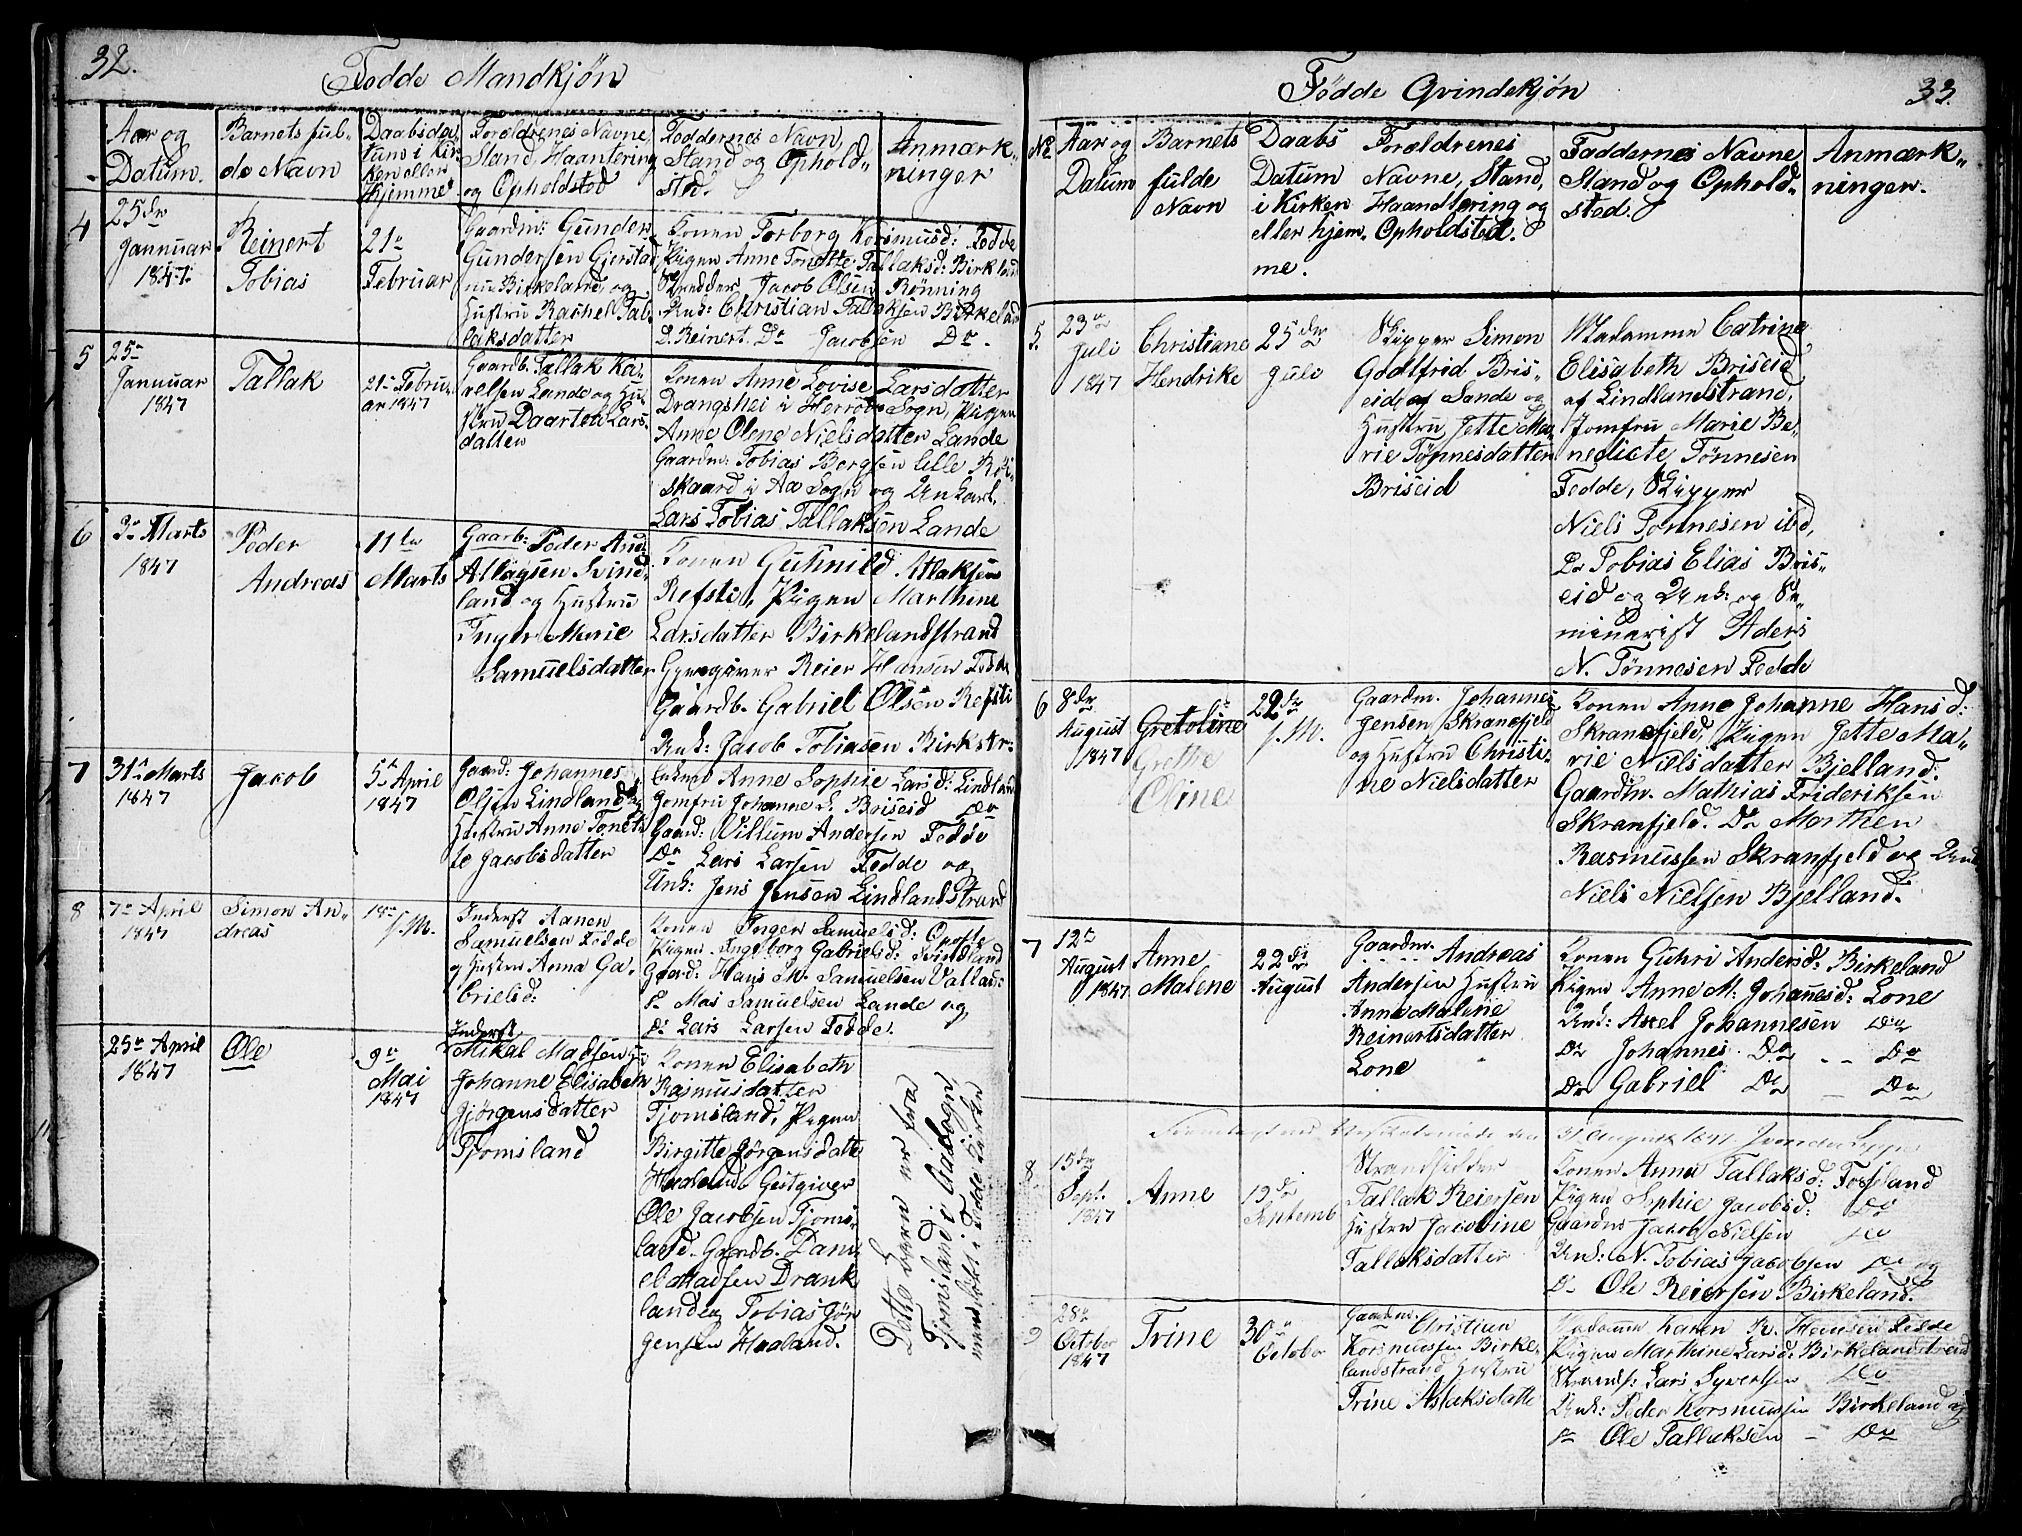 32.
Fødde Mandkjøn
Aar og
Datum.
Barnets ful-
de Navn
Daabsda-
tum i Kir-
ken eller
Hjemme
Forældrenes Navne,
Stand, Haantering
og Opholdsted
Faddernes Navn,
Stand og Ophold-
sted.
Anmærk-
ninger
4
25de
Januuar
1847.
Reinert
Tobias
21de
Februar
Gaardm: Gunder
Gundersen Gjerstad
nu Birkeland, og
Hustru Rachel Tal-
laksdatter
Konen Torborg Korsmusd: Fedde
Pigen Anne Tonette Tallaksd: Birkland
Skredder Jacob Olsen Rønning
Unk: Christian Tallaksen Birkeland
D. Reinert Do Jacobsen Do.
5
25de
Januuar
1847
Tallak
21de Febru-
ar 1847
Gaardb. Tallak Ka-
relsen Lande og Hu-
stru Daarten Lars-
datter
Konen Anne Lovise Larsdatter
Drangshei i Herrø Sogn, Pigen
Anne Olene Nielsdatter Lande
Gaardm: Tobias Bergsen lille Røi-
skaard i Aa Sogn og Unkarl
Lars Tobias Tallaksen Lande
6
3de Marts
1847
Peder
Andreas
11te
Marts
Gaardb: Peder And:
Atlagsen Svind-
land og Hustru
Inger Marie
Samuelsdatter
Konen Guhnild Atlaksen
Refsti, Pigen Marthine
Larsdatter Birkelandstrand
Gjæsgiver Reier Hansen Fedde
Gaardb. Gabriel Olsen Refsti
Unk: Jacob Tobiasen Birkstr:
7
31te Marts
1847
Jacob
5te April
1847
Gaard: Johannes
Olsen Lindland og
Hustru Anne Tonet-
te Jacobsdatter
Enken Anne Sophie Larsd: Lindland
Jomfru Johanne S. Briseid Do
Gaard: Villum Andersen Fedde
Do Lars Larsen Fedde og
Unk: Jens Jensen Lindlandstrand
8
7de April
1847
Simon An-
dreas
18de
s. M.
Inderst Aanen
Samuelsen Fedde
og Hustru Anna Ga-
brielsd:
Konen Inger Samuelsd: Opofte
Pigen Ingeborg Gabrielsd: Svindland
Gaard: Hans M. Samuelsen Vatland
D. Mas Samuelsen Lande og
Do Lars Larsen Fedde.
25de April
1847
Ole
9de
Mai
1847
Inderst
Mikal Madsen
Johanne Elisabeth
Gjørgensdatter
Fjomsland
Konen Elisabeth
Rasmusdatter
Fjomsland, Pigen
Birgitte Jørgensdatte
Haaland. Gestgiver
Ole Jacobsen Fjoms-
land. Gaardb. Dani-
el Madsen Drank
land og Tobias Jør
gensen Haaland.
Dette Barn er fra
Fjomsland i Aa Sogn
men døbt i Fedde Kirke
33.
Fødde Qvindekjøn
No
Aar og
Datum
Barnets
fulde
Navn
Daabs
Datum
i Kirken
eller hjem-
me.
Forældrenes
Navne, Stand,
Haandtering og
Opholdsted.
Faddernes Navne
Stand og Ophold-
sted.
Anmærk-
ninger.
5.
23de
Juli
1847
Christiane
Hendrike
25de
Juli
Skipper Simon
Godtfrid Bris-
eid, af Lande og
Hustru Jette Ma-
rie Tønnesdatter
Briseid
Madamme Catrine
Elisabeth Briseid
af Lindlandstrand,
Jomfru Marie Be-
nedicte Tønnesen
Fedde, Skipper
Niels Tønnesen ibd,
Do Tobias Elias Bris-
eid og Unk: og Se-
minarist Aders
N. Tønnesen Fedde
6
8de
August
1847
Gretoline
Grethe
Oline
22de
s. M.
Gaardm. Johannes
Jensen Skranefjeld
og Hustru Christi-
ne Nielsdatter
Konen Anne Johanne Hansd:
Skranefjeld, Pigen Jette Ma-
rie Nielsdatter Bjelland.
Gaardm. Mathias Frideriksen
Skranfjeld. Do Morthen
Rasmussen Skranfjeld og Unk
Niels Nielsen Bjelland.
7
12te
August
1847
Anne
Malene
22de
August
Gaardm. Andreas
Andersen Hustru
Anne Malene
Reinertsdatter
Lone
Konen Guhri Andersd: Birkeland
Pigen Anne M: Johanesd: Lone
Unk: Axel Johannesen Do
Do Johannes Do Do
Do Gabriel Do Do
31 August 1847
8
15de
Sept.
1847
Anne
19de
Septemb
Strandsidder
Tallak Reiersen
Hustru Jacobine
Tallaksdatter
Konen Anna Tallaksd: Fosseland
Pigen Sophie Jacobsd: Do
Gaardm Jacob Nielsen Do
Unk: N. Tobias Jacobsen Do og
D. Ole Reiersen Birkeland.
9
28de
October
1847
Trine
30de
October
Gaardm: Christian
Korsmussen Birke-
landstrand Hustru
Trine Aslaksdatte
Madamm Karen R. Hansen Fedde
Pigen Marthine Larsd: Birkelandstrand
Strands: Lars Syvertsen Do
Unk: Peder Korsmussen Birkeland og
Do Ole Tallaksen - Do